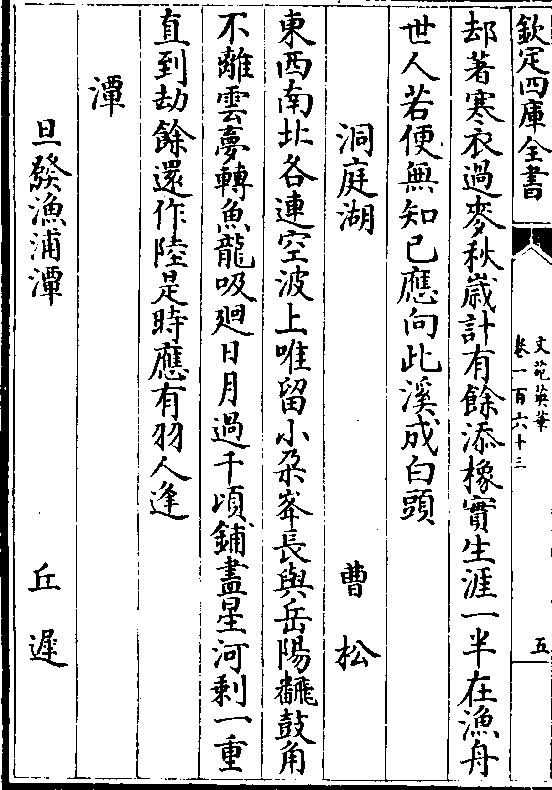 欽定四庫全書
文苑英華
卷一百六十三
五
却著寒衣過麥秋歲計有餘添橡實生涯一半在漁舟
世人若便無知已應向此溪成白頭
洞庭湖 曹松
東西南北各連空波上唯留小朶峯長與岳陽飜鼓角
不離雲夢轉魚龍吸廻日月過千頃鋪盡星河剩一重
直到劫餘還作陸是時應有羽人逢
潭
旦發漁浦潭 丘遲